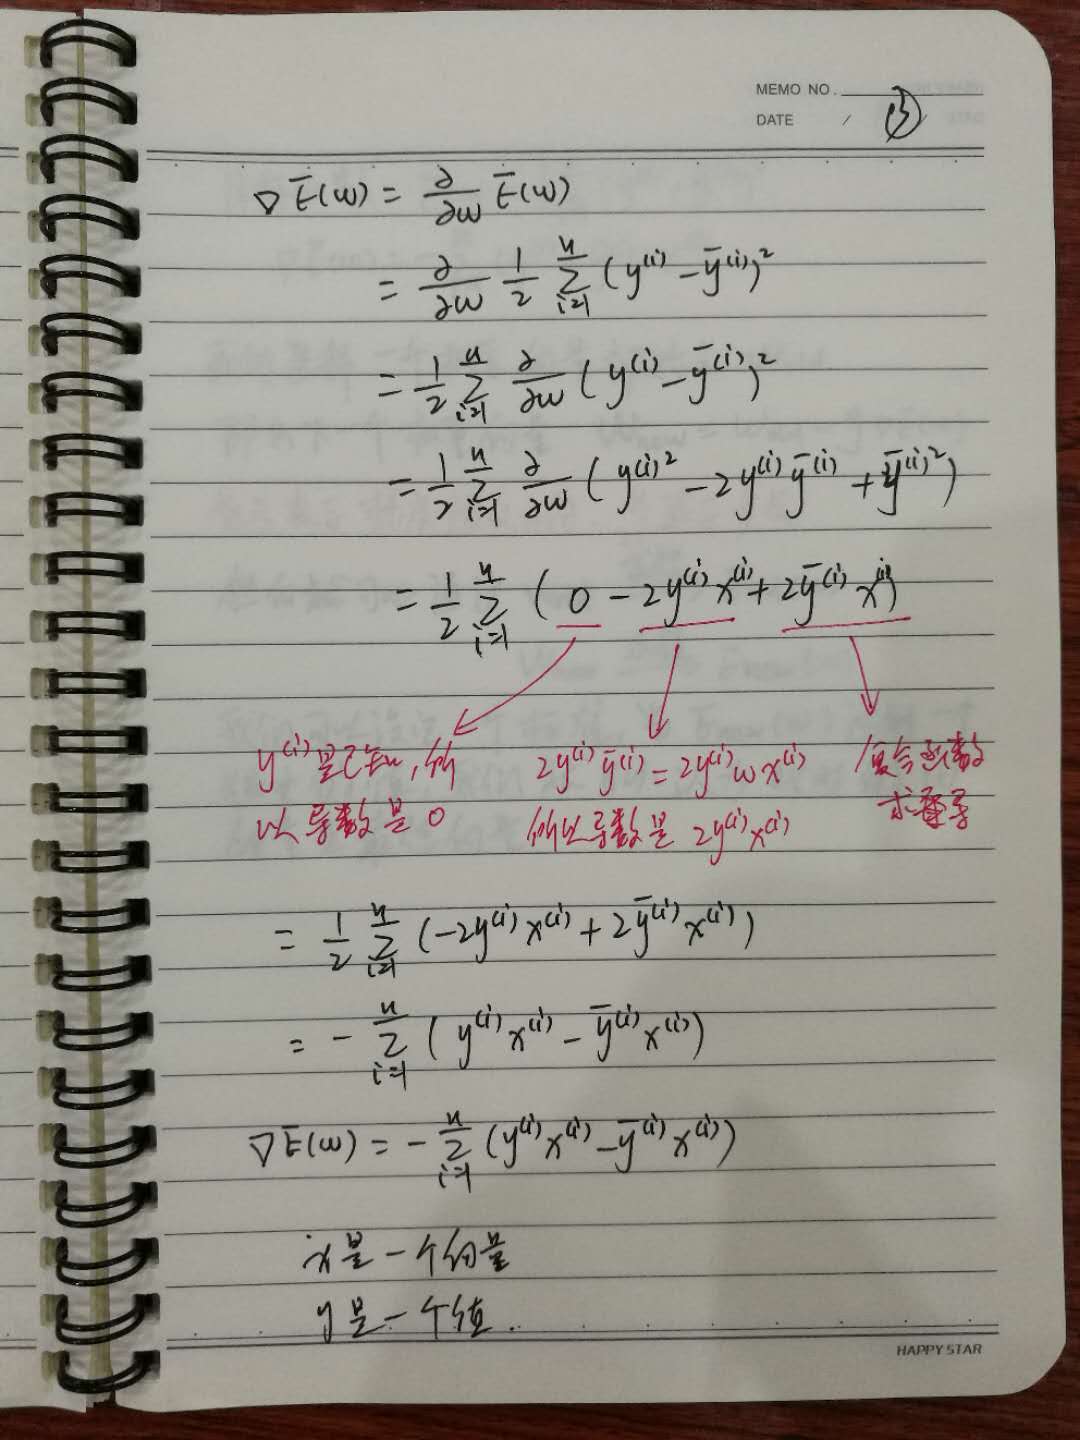 MEMO NO.
DATE / /
③
∇Ē(w) = ∂/∂w Ē(w)
= ∂/∂w 1/2 Σ_{i=1}^{n} (y⁽ⁱ⁾ - ȳ⁽ⁱ⁾)²
= 1/2 Σ_{i=1}^{n} ∂/∂w (y⁽ⁱ⁾ - ȳ⁽ⁱ⁾)²
= 1/2 Σ_{i=1}^{n} ∂/∂w (y⁽ⁱ⁾² - 2y⁽ⁱ⁾ȳ⁽ⁱ⁾ + ȳ⁽ⁱ⁾²)
= 1/2 Σ_{i=1}^{n} (0 - 2y⁽ⁱ⁾x⁽ⁱ⁾ + 2ȳ⁽ⁱ⁾x⁽ⁱ⁾)
y⁽ⁱ⁾是已知,所
以导数是0
2y⁽ⁱ⁾ȳ⁽ⁱ⁾ = 2y⁽ⁱ⁾wx⁽ⁱ⁾
所以导数是 2y⁽ⁱ⁾x⁽ⁱ⁾
复合函数
求导
= 1/2 Σ_{i=1}^{n} (-2y⁽ⁱ⁾x⁽ⁱ⁾ + 2ȳ⁽ⁱ⁾x⁽ⁱ⁾)
= - Σ_{i=1}^{n} (y⁽ⁱ⁾x⁽ⁱ⁾ - ȳ⁽ⁱ⁾x⁽ⁱ⁾)
∇Ē(w) = - Σ_{i=1}^{n} (y⁽ⁱ⁾x⁽ⁱ⁾ - ȳ⁽ⁱ⁾x⁽ⁱ⁾)
x是一个向量
y是一个值.
HAPPY STAR